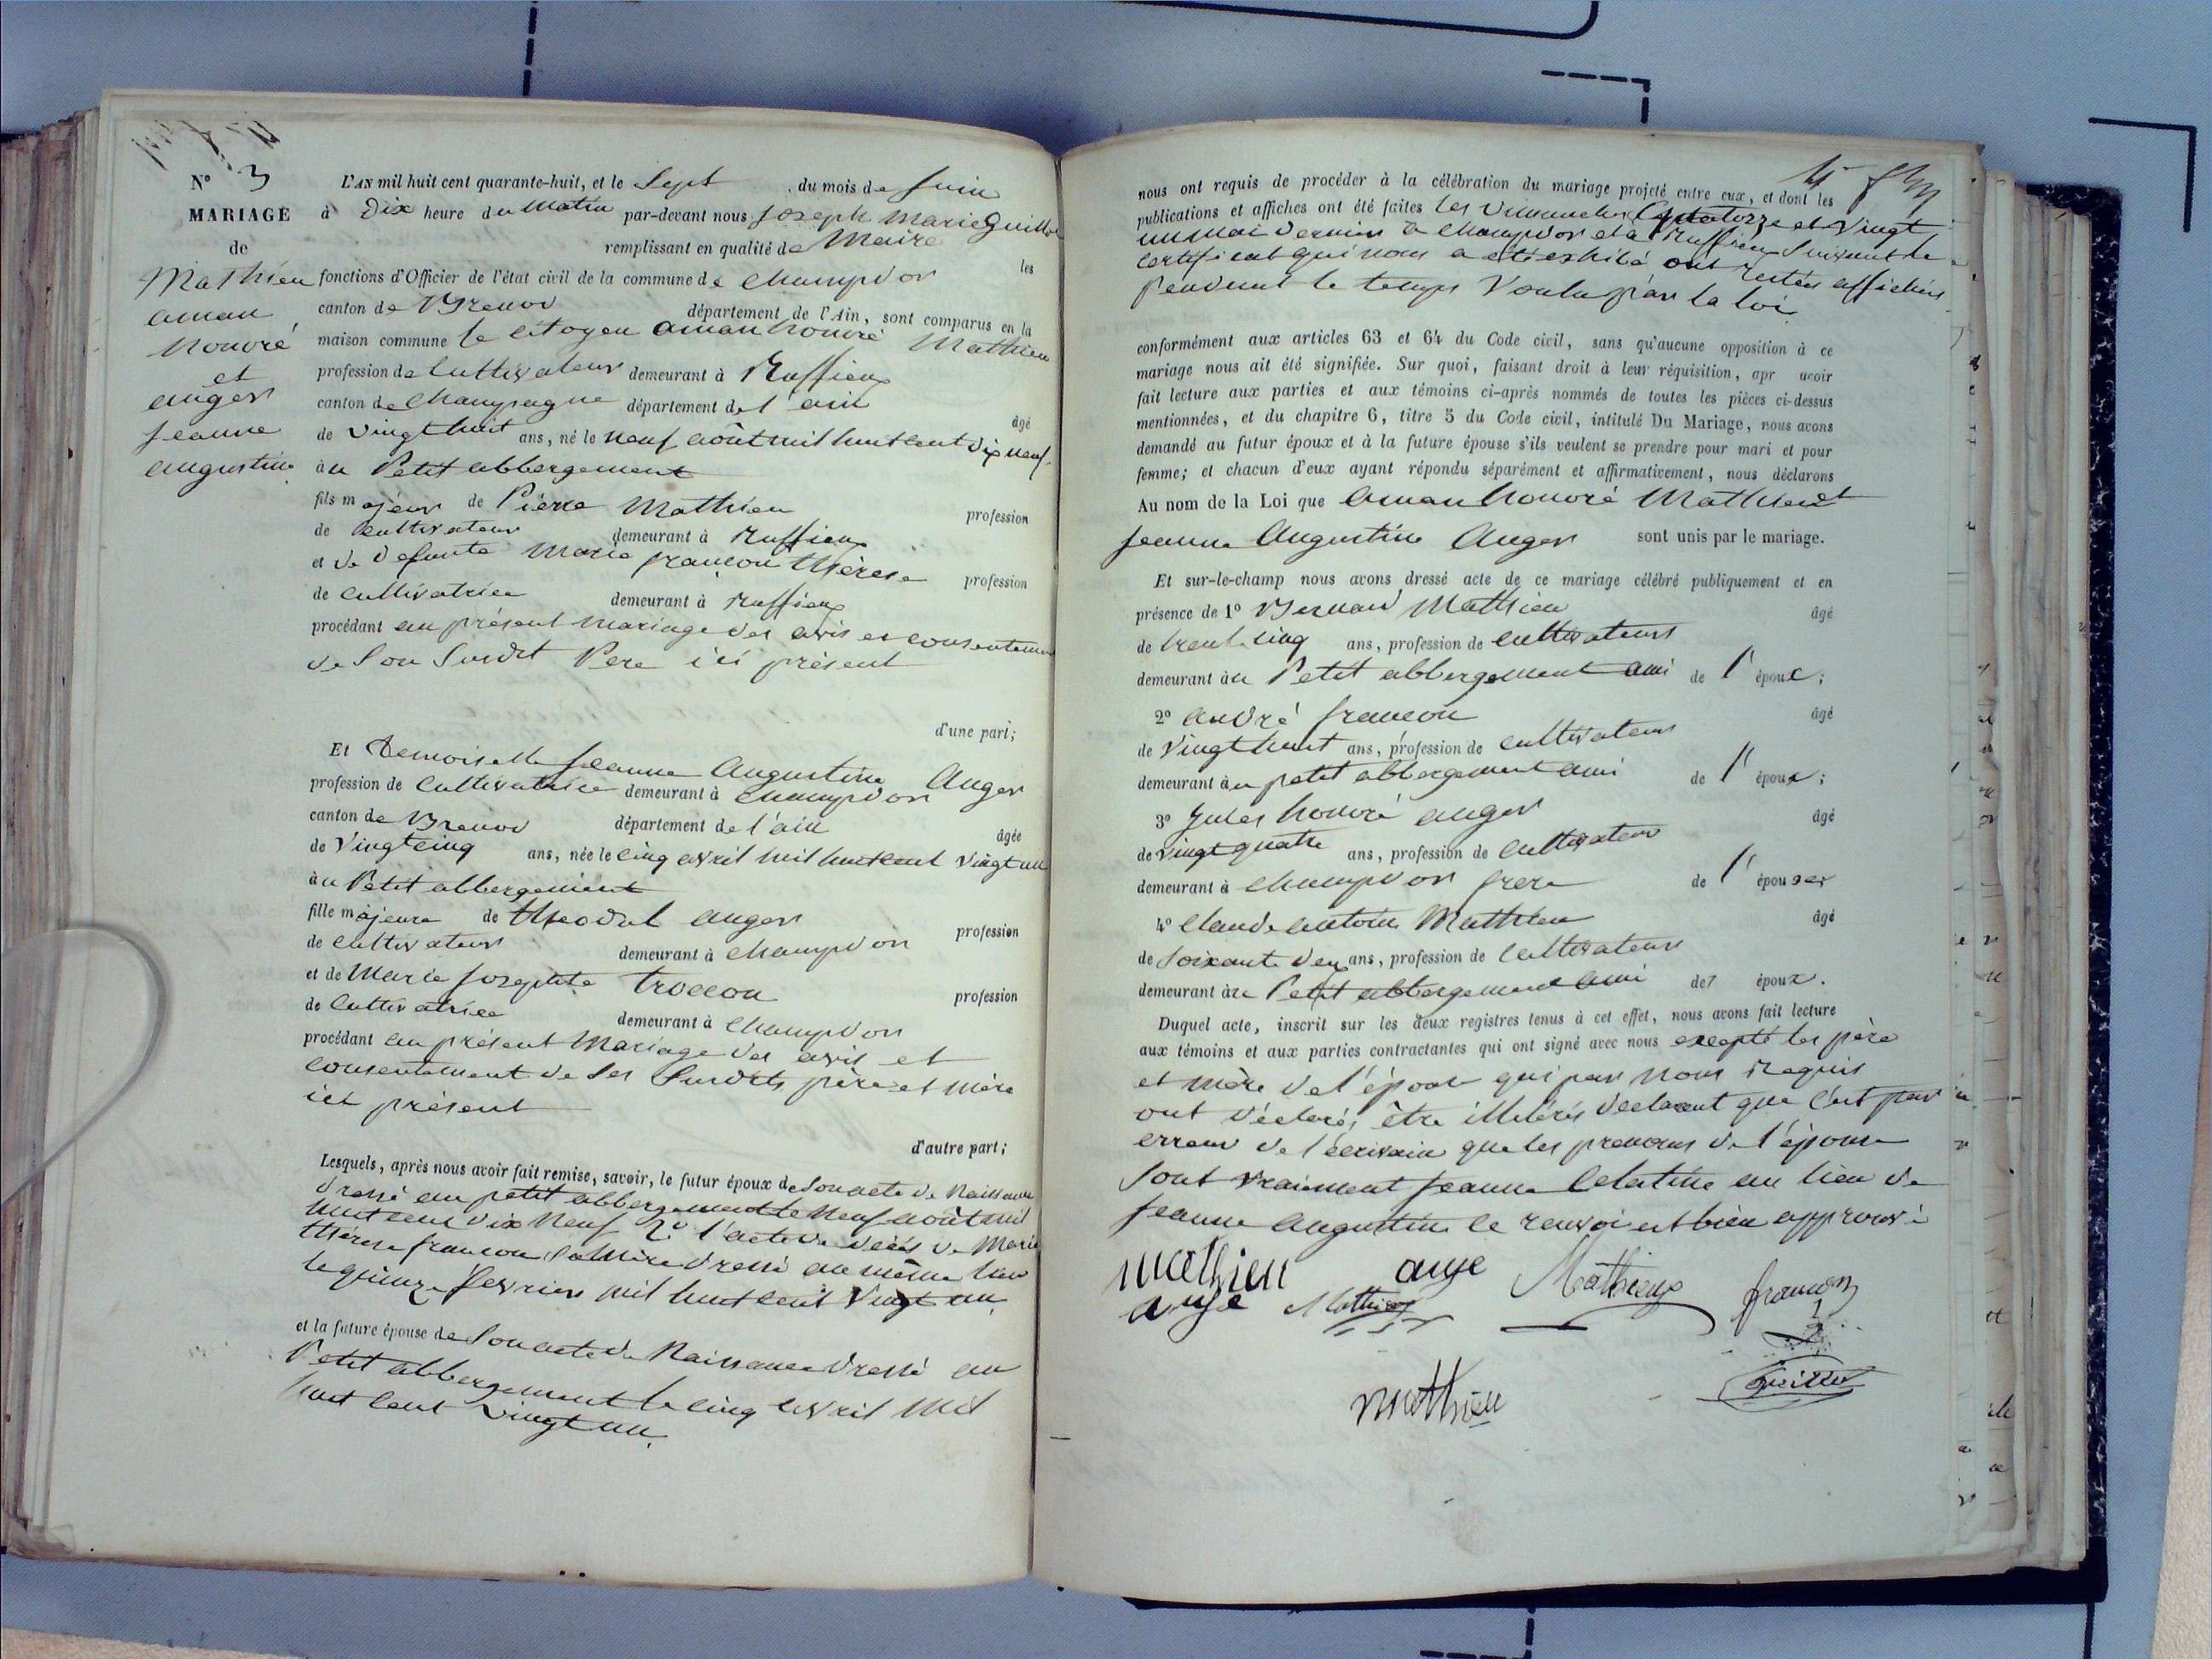 N° 3
MARIAGE
de
Mathieu
aman
honoré
et
anger
jeanne
augustine
L'AN mil huit cent quarante-huit, et le Sept du mois de juin
à Dix heure du Matin par-devant nous joseph marie Guillot
remplissant en qualité de Maire les
fonctions d'Officier de l'état civil de la commune de champdor
canton de Brenod département de l'Ain, sont comparus en la
maison commune le citoyen aman honoré Mathieu
profession de Cultivateur demeurant à Ruffieux
canton de Champagne département de l'ain âgé
de vingt huit ans, né le neuf août mil huit cent dix neuf
à au Petit abbergement
fils majeur de Pierre Mathieu profession
de Cultivateur demeurant à Ruffieux
et de defunte Marie françon thérèse profession
de Cultivatrice demeurant à Ruffieux
procédant au présent mariage des avis et consentement
de son Susdit Pere ici présent
d'une part;
Et Demoiselle jeanne Augustine Anger
profession de Cultivatrice demeurant à champdor
canton de Brenod département de l'ain âgée
de Vingt cinq ans, née le cinq avril mil huit cent vingt un
à au Petit abbergement
fille majeure de théodul anger profession
de Cultivateur demeurant à champdor
et de Marie josephte troccon profession
de Cultivatrice demeurant à Champdor
procédant au présent Mariage des avis et
consentement de ses Susdits père et mère
ici présent
d'autre part;
Lesquels, après nous avoir fait remise, savoir, le futur époux de Son acte de Naissance
dressé au petit abbergement le neuf août mil
huit cent dix neuf 2° l'acte de décès de Marie
thérese françon sa Mère dressé au même lieu
le quinze fevrier mil huit cent vingt un
et la future épouse de Son acte de Naissance dressé au
Petit abbergement le cinq avril mil
huit cent vingt un.
nous ont requis de procéder à la célébration du mariage projeté entre eux, et dont les
publications et affiches ont été faites les dimanches quatorze et vingt
un mai dernier à Champdor et à Ruffieu Suivant le
certificat qui nous a été exhibé ont restées affichées
pendant le temps voulu par la loi
conformément aux articles 63 et 64 du Code civil, sans qu'aucune opposition à ce
mariage nous ait été signifiée. Sur quoi, faisant droit à leur réquisition, apr avoir
fait lecture aux parties et aux témoins ci-après nommés de toutes les pièces ci-dessus
mentionnées, et du chapitre 6, titre 5 du Code civil, intitulé Du Mariage, nous avons
demandé au futur époux et à la future épouse s'ils veulent se prendre pour mari et pour
femme; et chacun d'eux ayant répondu séparément et affirmativement, nous déclarons
Au nom de la Loi que Aman honoré Mathieu et
jeanne Augustine Anger sont unis par le mariage.
Et sur-le-champ nous avons dressé acte de ce mariage célébré publiquement et en
présence de 1° Bernard Mathieu âgé
de trent cinq ans, profession de Cultivateur
demeurant à au Petit abbergement ami de l' époux;
2° andré françon âgé
de Vingt huit ans, profession de cultivateur
demeurant à au petit abbergement ami de l' époux;
3° jules honoré anger âgé
de vingt quatre ans, profession de Cultivateur
demeurant à champdor frere de l' épouse
4° Claude antoine Mathieu âgé
de soixante deux ans, profession de Cultivateur
demeurant à au Petit abbergement ami de l' époux.
Duquel acte, inscrit sur les deux registres tenus à cet effet, nous avons fait lecture
aux témoins et aux parties contractantes qui ont signé avec nous excepté les père
et mère de l'épouse qui par nous Requis
ont déclaré être illetérés declarent que c'est par
erreur de l'écrivain que les prenoms de l'épouse
sont vraiment jeanne Celestine au lieu de
jeanne augustine le renvoi est bien approuvé
mathieu ange Mathieu françon
ange Mathieu
mathieu Guillot